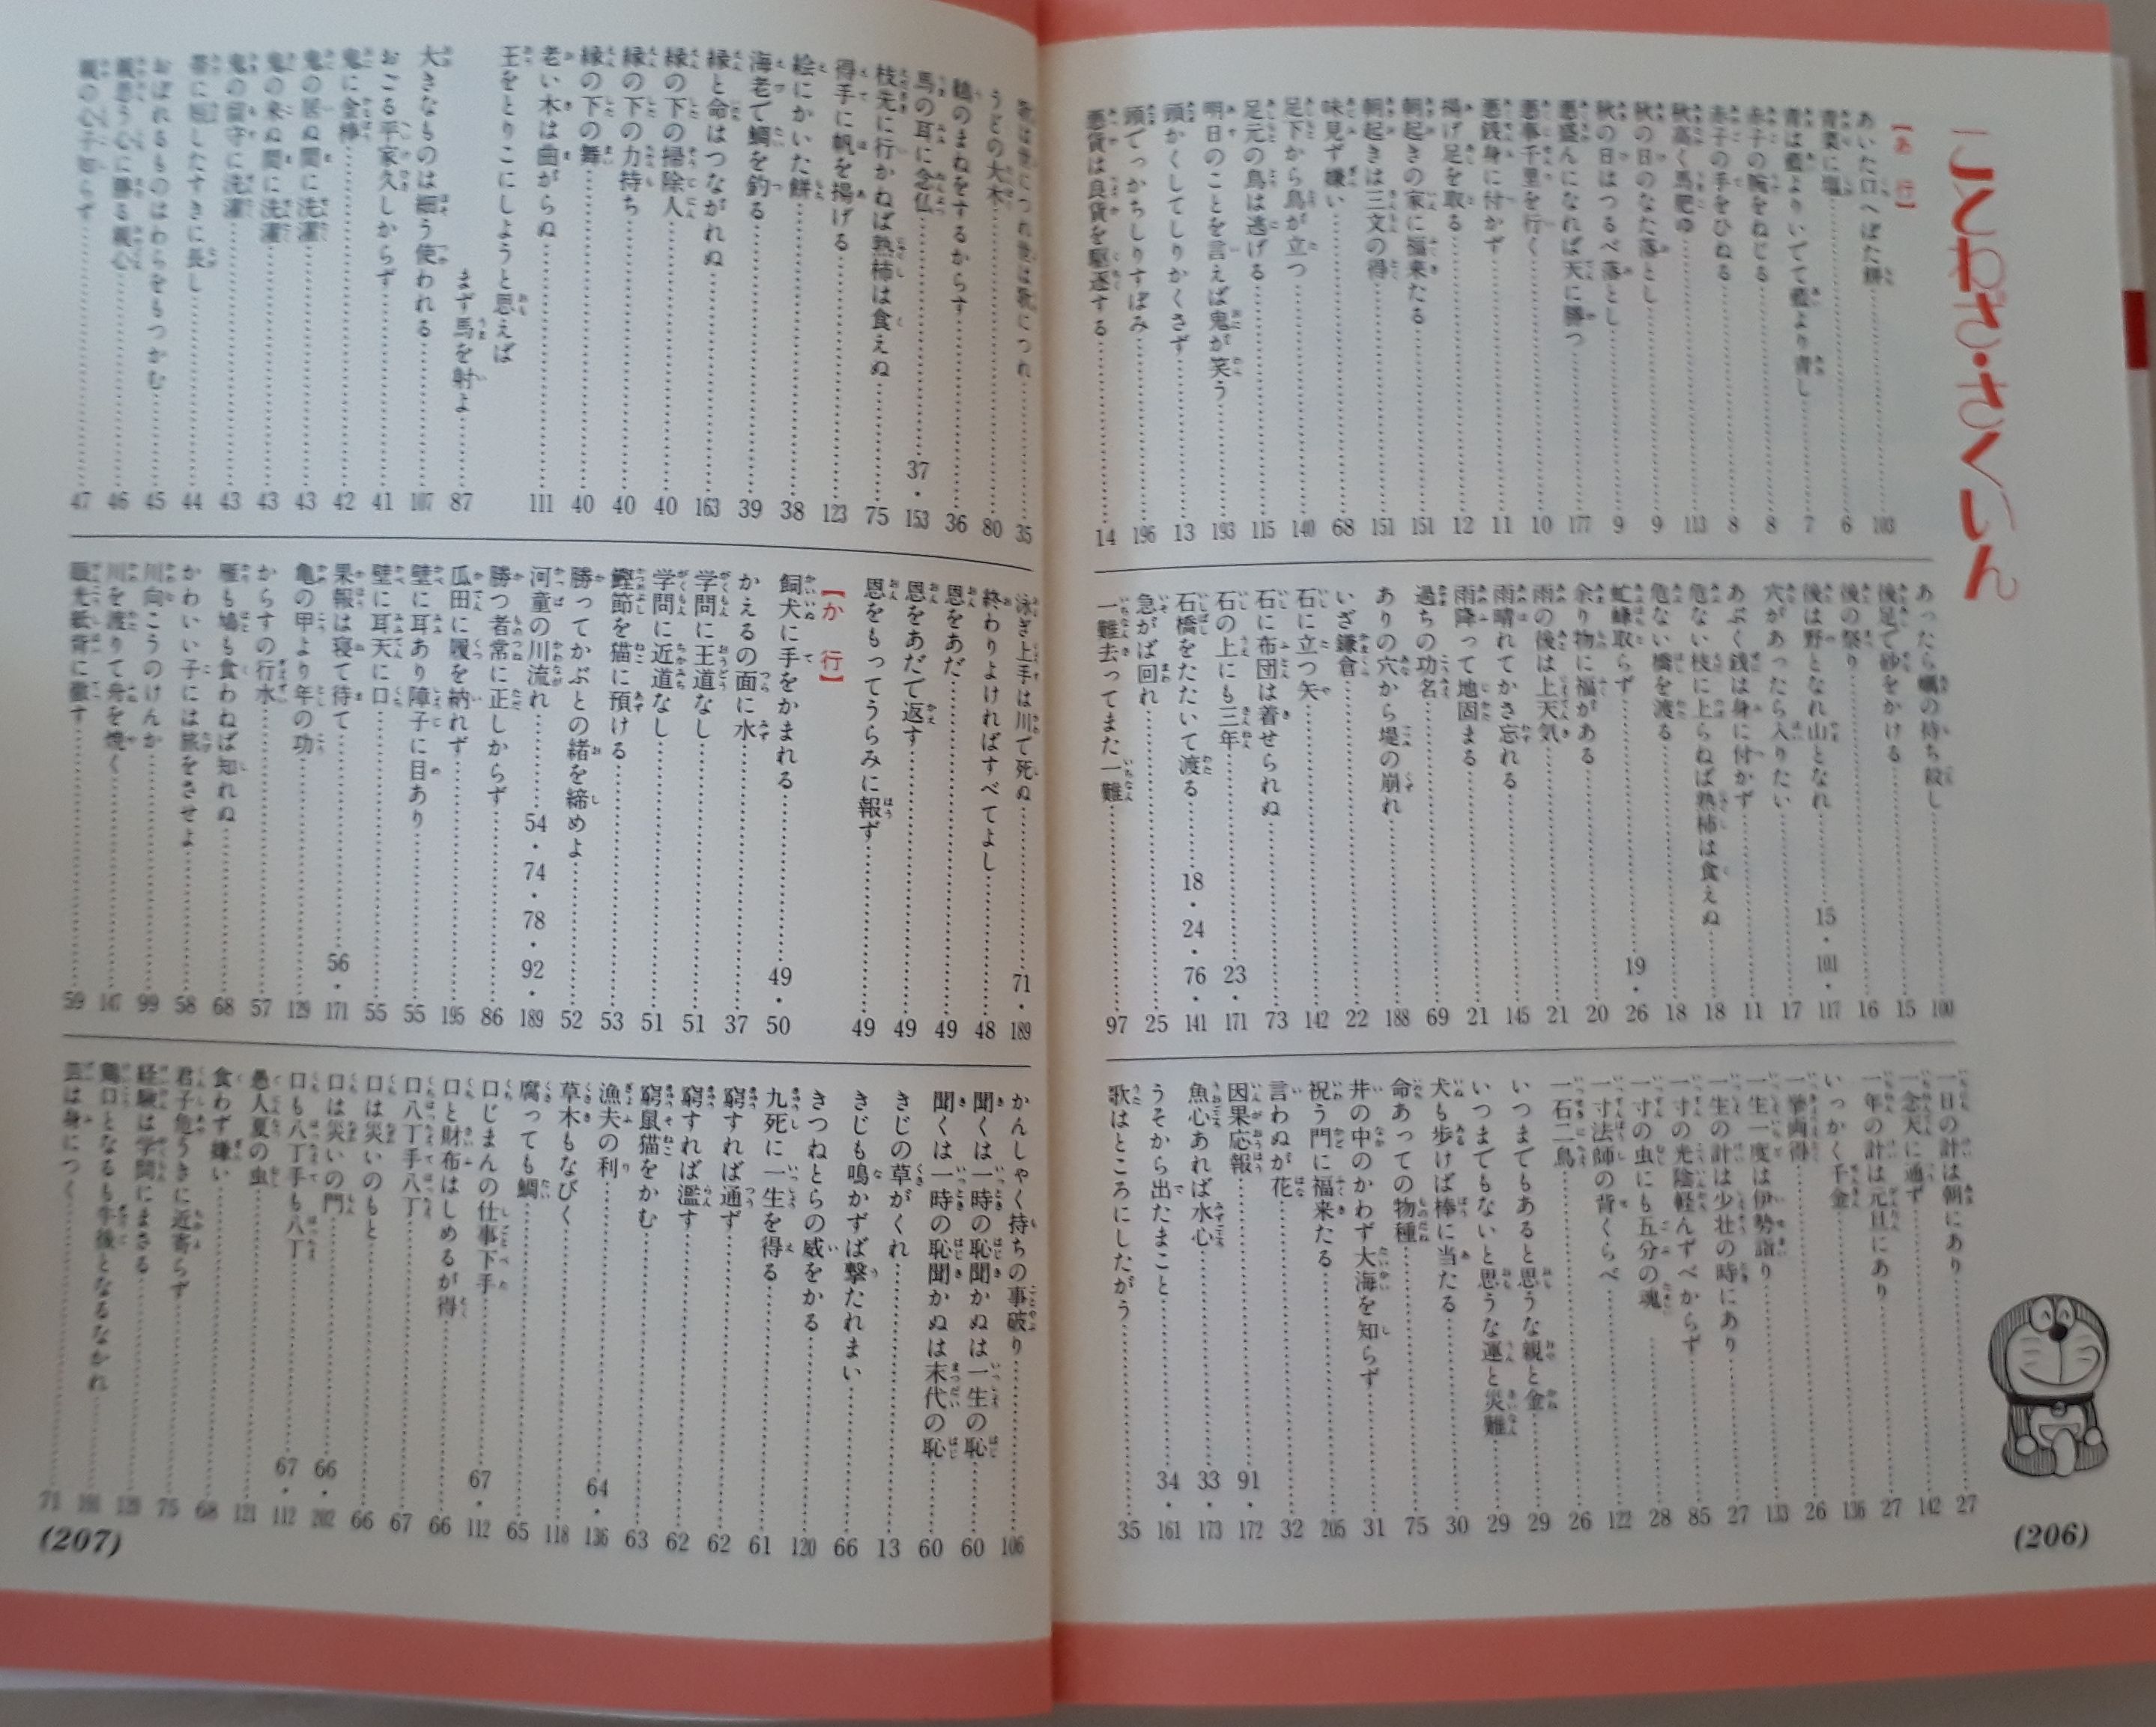 ことわざ・さくいん
【あ行】
あいた口へぼた餅……103
青菜に塩……6
青は藍よりいでて藍より青し……7
赤子の腕をねじる……8
赤子の手をひねる……8
秋高く馬肥ゆ……113
秋の日のなた落とし……9
秋の日はつるべ落とし……9
悪盛んになれば天に勝つ……177
悪事千里を行く……10
悪銭身に付かず……11
揚げ足を取る……12
朝起きの家に福来たる……151
朝起きは三文の得……151
味見ず嫌い……68
足下から鳥が立つ……140
足元の鳥は逃げる……115
明日のことを言えば鬼が笑う……193
頭かくしてしりかくさず……13
頭でっかちしりすぼみ……196
悪貨は良貨を駆逐する……14
あったら蠟の持ち殺し……100
後足で砂をかける……15
後の祭り……16
後は野となれ山となれ……15・101・117
穴があったら入りたい……17
あぶく銭は身に付かず……11
危ない枝に上らねば熟柿は食えぬ……18
危ない橋を渡る……18
虻蜂取らず……19・26
余り物に福がある……20
雨の後は上天気……21
雨晴れてかさ忘れる……145
雨降って地固まる……21
過ちの功名……69
ありの穴から堤の崩れ……188
いざ鎌倉……22
石に立つ矢……142
石に布団は着せられぬ……73
石の上にも三年……23・171
石橋をたたいて渡る……18・24・76・141
急がば回れ……25
一難去ってまた一難……97
一日の計は朝にあり……27
一念天に通ず……142
一年の計は元旦にあり……27
いっかく千金……136
一挙両得……26
一生一度は伊勢詣り……133
一生の計は少壮の時にあり……27
一寸の光陰軽んずべからず……85
一寸の虫にも五分の魂……28
一寸法師の背くらべ……122
一石二鳥……26
いつまでもあると思うな親と金……29
いつまでもないと思うな運と災難……29
犬も歩けば棒に当たる……30
命あっての物種……75
井の中のかわず大海を知らず……31
祝う門に福来たる……205
言わぬが花……32
因果応報……91・172
魚心あれば水心……33・173
うそから出たまこと……34・161
歌はところにしたがう……35
(206)
歌は世につれ世は歌につれ……35
うどの大木……80
鵜のまねをするからす……36
馬の耳に念仏……37・153
枝先に行かねば熟柿は食えぬ……75
得手に帆を揚げる……123
絵にかいた餅……38
海老で鯛を釣る……39
縁と命はつながれぬ……163
縁の下の掃除人……40
縁の下の力持ち……40
縁の下の舞……40
老い木は曲がらぬ……111
王をとりこにしようと思えば
まず馬を射よ……87
大きなものは細う使われる……107
おごる平家久しからず……41
鬼に金棒……42
鬼の居ぬ間に洗濯……43
鬼の来ぬ間に洗濯……43
鬼の留守に洗濯……43
帯に短したすきに長し……44
おぼれるものはわらをもつかむ……45
親思う心に勝る親心……46
親の心子知らず……47
泳ぎ上手は川で死ぬ……71・189
終わりよければすべてよし……48
恩をあだ……49
恩をあだで返す……49
恩をもってうらみに報ず……49
【か行】
飼犬に手をかまれる……49・50
かえるの面に水……37
学問に王道なし……51
学問に近道なし……51
鰹節を猫に預ける……53
勝ってかぶとの緒を締めよ……52
河童の川流れ……54・74・78・92・189
勝つ者常に正しからず……86
瓜田に履を納れず……195
壁に耳あり障子に目あり……55
壁に耳天に口……55
果報は寝て待て……56・171
亀の甲より年の功……129
からすの行水……57
雁も鳩も食わねば知れぬ……68
かわいい子には旅をさせよ……58
川向こうのけんか……99
川を渡りて舟を焼く……147
眼光紙背に徹す……59
かんしゃく持ちの事破り……106
聞くは一時の恥聞かぬは一生の恥……60
聞くは一時の恥聞かぬは末代の恥……60
きじの草がくれ……13
きじも鳴かずば撃たれまい……66
きつねとらの威をかる……120
九死に一生を得る……61
窮すれば通ず……62
窮すれば濫す……62
窮鼠猫をかむ……63
漁夫の利……64・136
草木もなびく……118
腐っても鯛……65
口じまんの仕事下手……67・112
口と財布はしめるが得……66
口八丁手八丁……67
口は災いのもと……66
口は災いの門……66・202
口も八丁手も八丁……67・112
愚人夏の虫……121
食わず嫌い……68
君子危うきに近寄らず……75
経験は学問にまさる……129
鶏口となるも牛後となるなかれ……191
芸は身につく……71
(207)